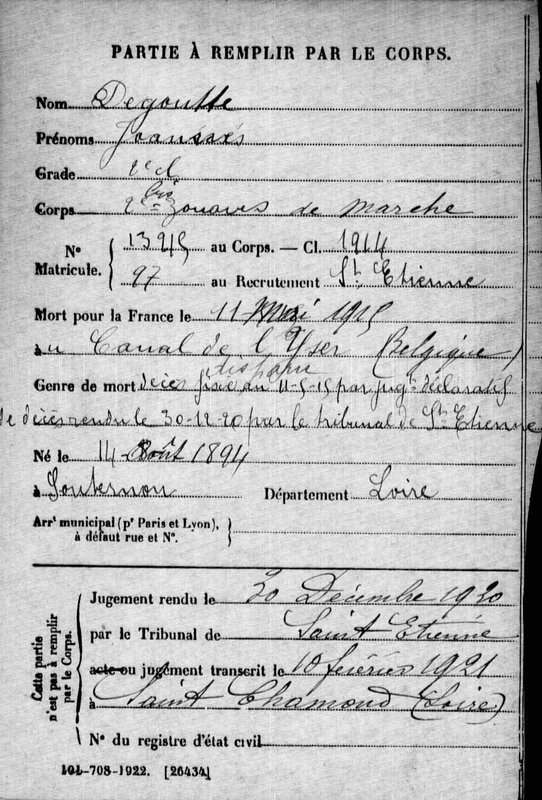 PARTIE À REMPLIR PAR LE CORPS.
Nom Degoutte
Prénoms Joannès
Grade 2e cl
Corps 2e Zouaves de marche
N° Matricule. 13245 au Corps. — Cl. 1914
97 au Recrutement St Etienne
Mort pour la France le 11 Mai 1915
au Canal de l'Yser (Belgique)
disparu
Genre de mort décès fixé au 11-5-15 par jugt déclaratif
de décès rendu le 30-12-20 par le tribunal de St Etienne
Né le 14 Août 1894
à Souternon Département Loire
Arrt municipal (pr Paris et Lyon), à défaut rue et N°.
Cette partie n'est pas à remplir par le Corps.
Jugement rendu le 30 Décembre 1920
par le Tribunal de Saint Etienne
acte ou jugement transcrit le 10 février 1921
à Saint Chamond (Loire)
N° du registre d'état civil
101-708-1922. [26434]